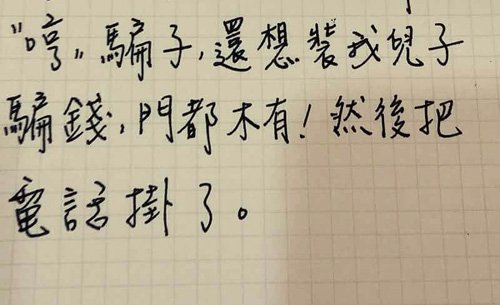 "哼",騙子,還想裝我兒子
騙錢,門都木有!然後把
電話掛了。